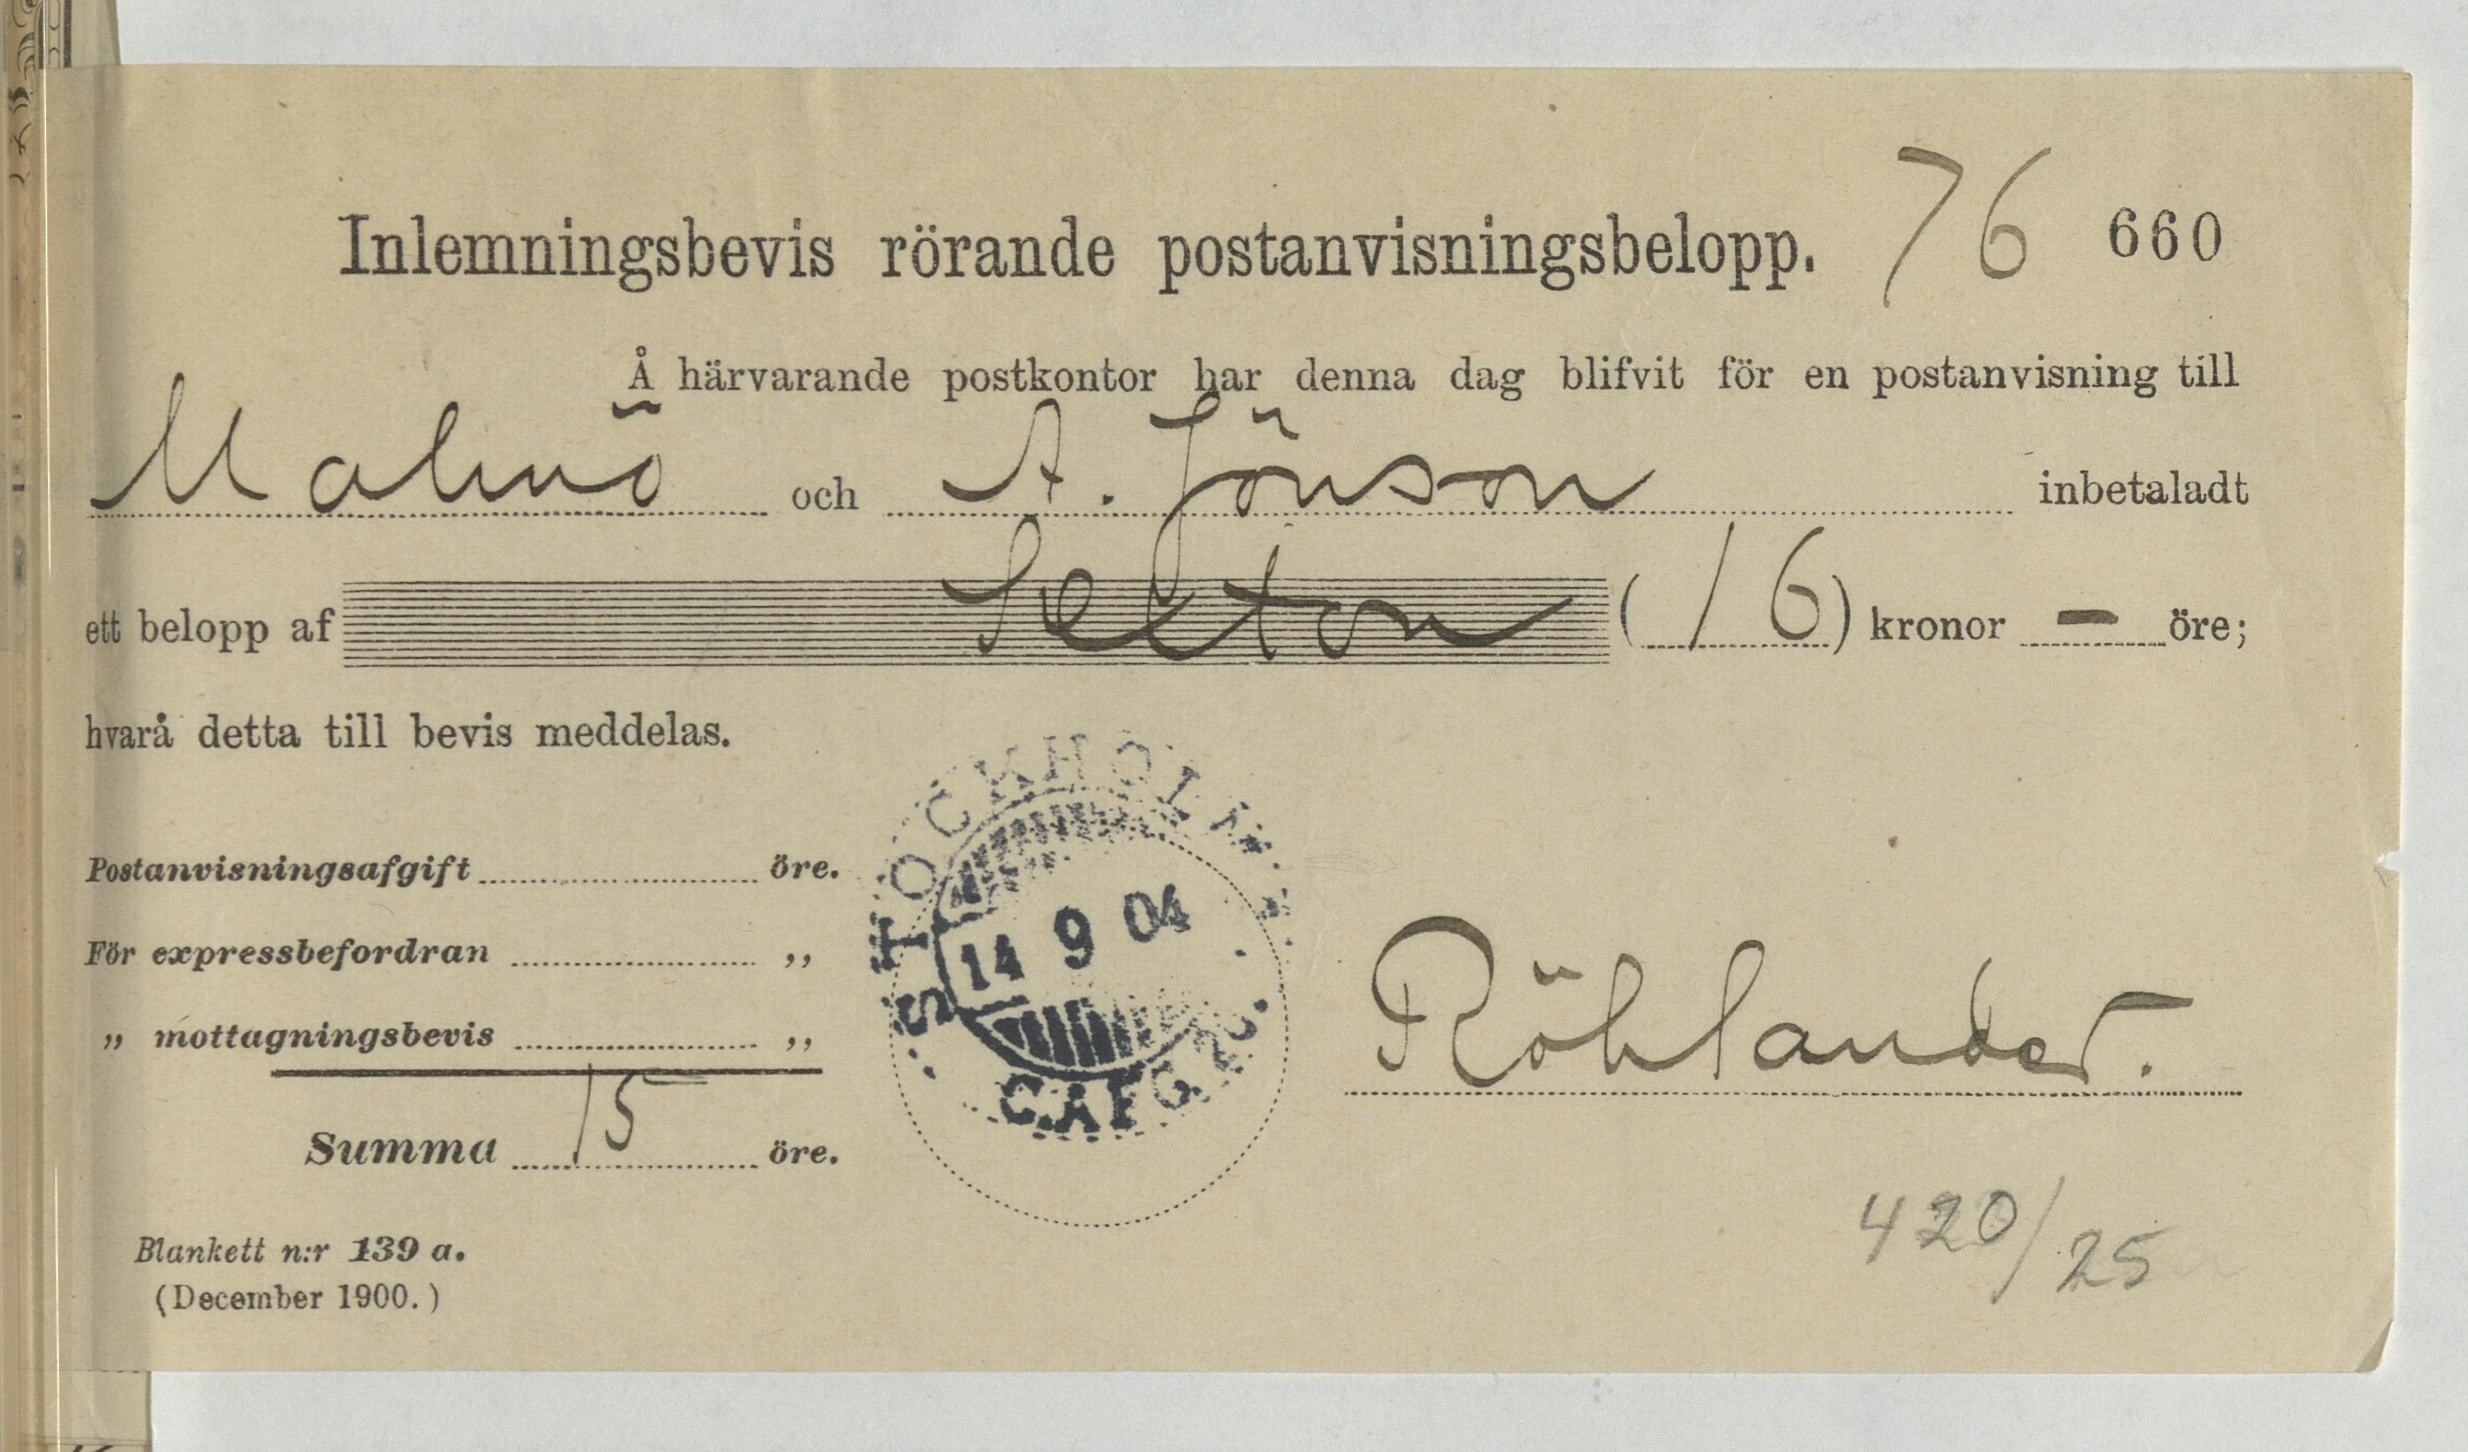 Inlemningsbevis rörande postanvisningsbelopp. 76 660
Å härvarande postkontor har denna dag blifvit för en postanvisning till
Malmö och A. Jönson inbetaladt
ett belopp af Sexton (16) kronor — öre;
hvarå detta till bevis meddelas.
Postanvisningsafgift öre.
För expressbefordran ,,
,, mottagningsbevis ,,
Summa 15 öre.
STOCKHOLM
14 9 04
Röhlander.
420/25
Blankett n:r 139 a.
(December 1900.)